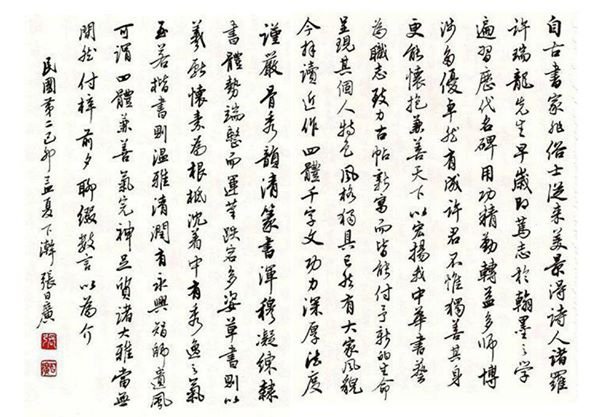 自古書家非俗士從來美景得詩人諸羅
許瑞龍先生早歲即篤志於翰墨之學
遍習歷代名碑用功精勤轉益多師博
涉多優卓然有成許君不惟獨善其身
更能懷抱兼善天下以宏揚我中華書藝
為職志致力古帖新寫而皆能付予新的生命
呈現其個人特色風格獨具已然有大家風貌
今拜讀近作四體千字文功力深厚法度
謹嚴骨秀韻清篆書渾穆凝練隸
書體勢端整而運筆跌宕多姿草書則以
羲獻懷素為根柢沈著中有秀逸之氣
至若楷書則溫雅清潤有永興智師遺風
可謂四體兼善氣完神足質諸大雅當無
間然付梓前夕聊綴數言以為介
民國第二己卯孟夏下澣張日廣